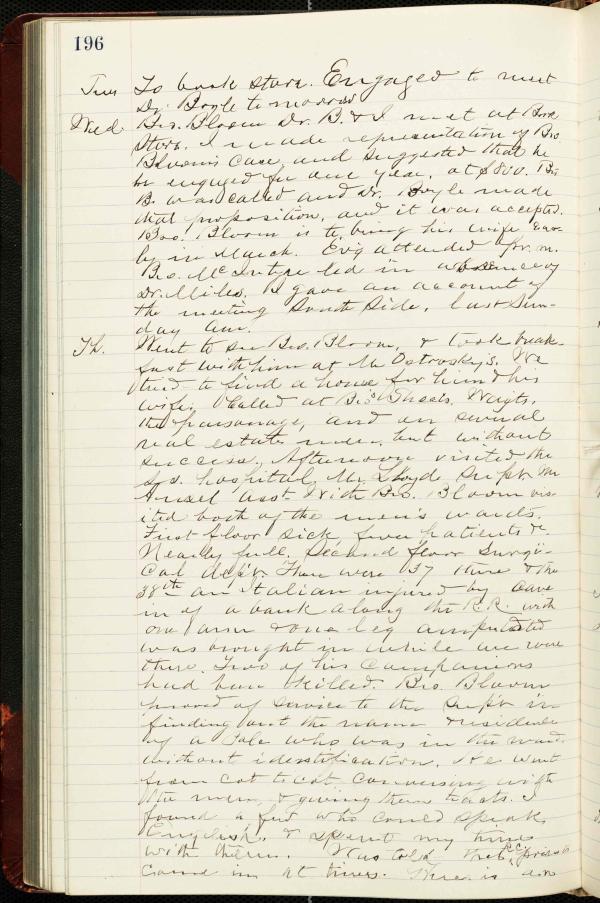 196
Tues To book store. Engaged to meet
Dr. Boyle tomorrow
Wed. Bro. Bloom Dr. B & I met at Book
Store. I made representation of Bro
Bloom's case, and suggested that he
be engaged for one year, at $800. Bro
B. was called and Dr. Boyle made
that proposition, and it was accepted.
Bro. Bloom is to bring his wife
by in March. Ev'g attended pr. m.
Bro. McIntyre led in absence of
Dr. Miles. I gave an account of
the meeting South Side, last Sun-
day am.
Th. Went to see Bro. Bloom, & took break-
fast with him at Mr Ostrosky's. We
tried to find a house for him & his
wife. Called at Bro's
the parsonage, and on several
real estate men, but without
success. Afternoon visited the
hospital, Mr. Lloyd Supt. Mr
Ansel asst. With Bro. Bloom vis-
ited both of the men's wards.
First floor sick, fever patients &c.
Nearly full. Second floor Surgi-
cal dep't. There were 37 there & the
38th an Italian injured by cave
in of a bank along the R.R. with
one arm & one leg amputated
was brought in while we were
there. Two of his companions
had been killed. Bro. Bloom
proved of service to the Supt in
finding out the name & residence
of a Pole who was in the ward
without identification. We went
from cot to cot, conversing with
the men, & giving them tracts. I
found a few who could speak
English, & spent my time
with them. Was told that R.C. priests
come in at times. There is